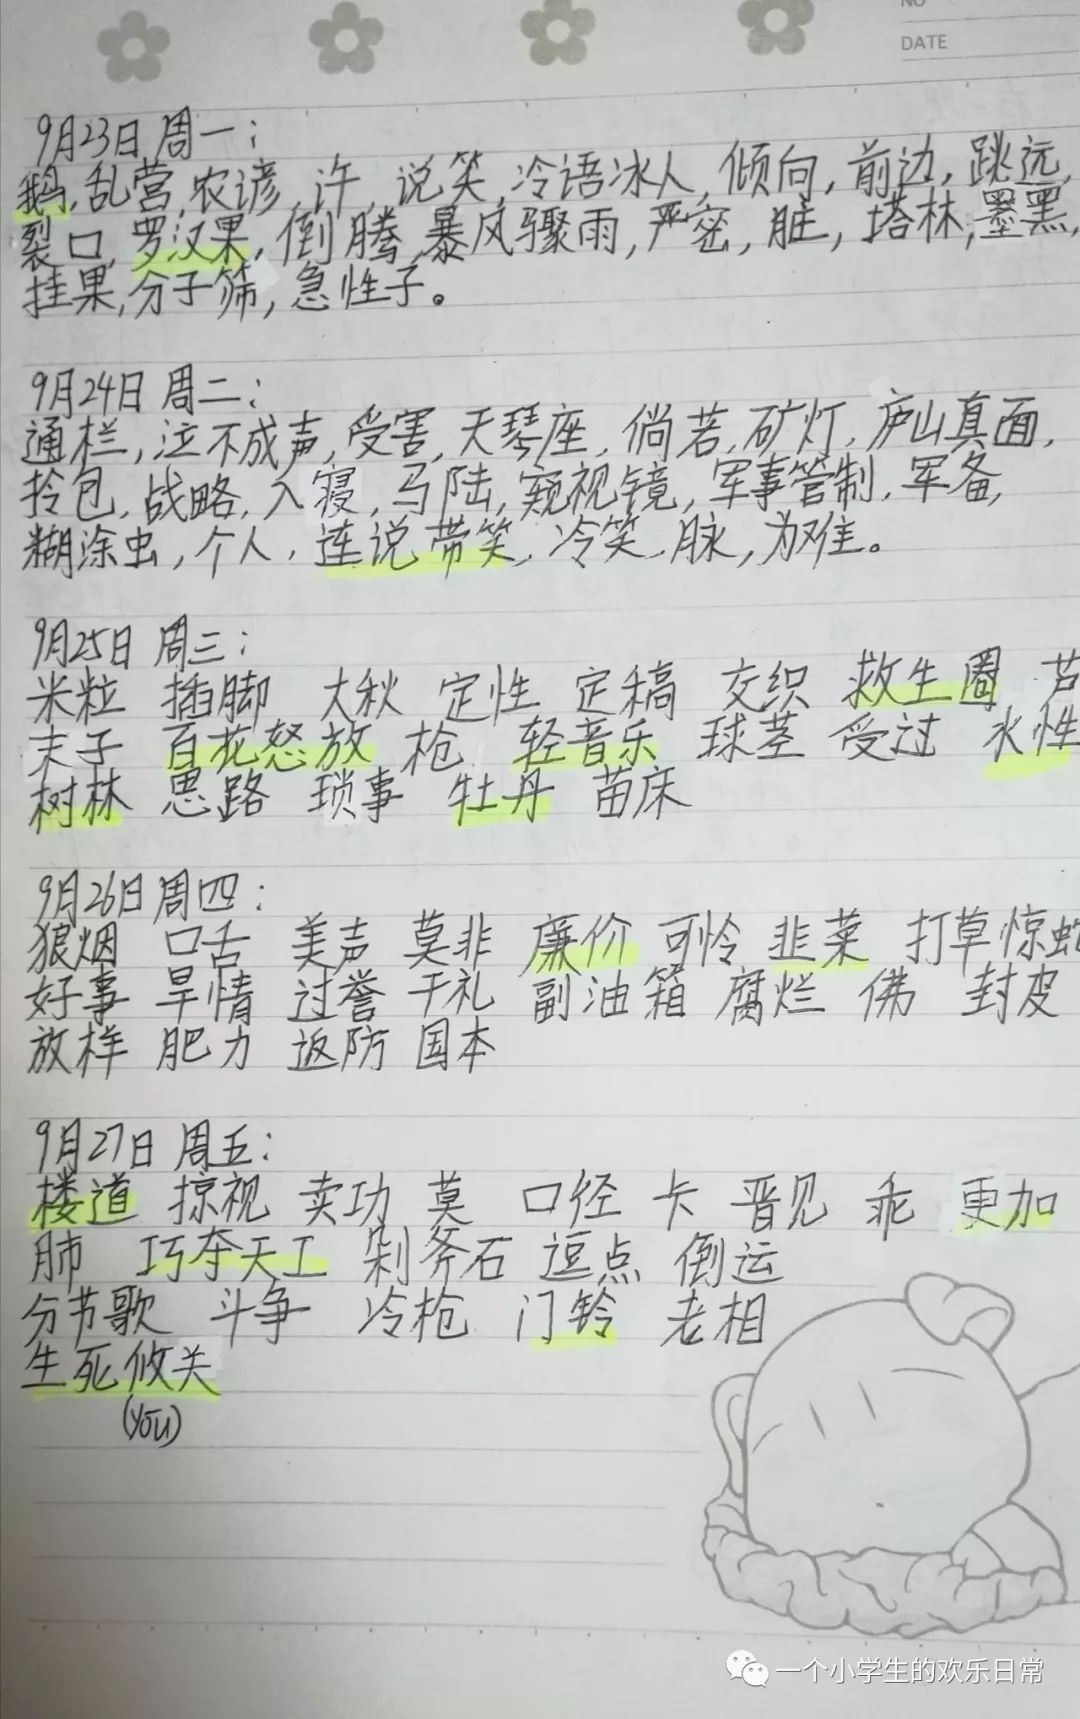 NO
DATE
9月23日 周一：
鹅,乱营,农谚,许,说笑,冷语冰人,倾向,前边,跳远,
裂口,罗汉果,倒腾,暴风骤雨,严密,脏,塔林,墨黑,
挂果,分子筛,急性子。
9月24日 周二：
通栏,泣不成声,受害,天琴座,倘若,矿灯,庐山真面,
拎包,战略,入寝,马陆,窥视镜,军事管制,军备,
糊涂虫,个人,连说带笑,冷笑,脉,为难。
9月25日 周三：
米粒 插脚 大秋 定性 定稿 交织 救生圈 芦
末子 百花怒放 枪 轻音乐 球茎 受过 水性
树林 思路 琐事 牡丹 苗床
9月26日 周四：
狼烟 口舌 美声 莫非 廉价 可怜 韭菜 打草惊蛇
好事 旱情 过誉 干礼 副油箱 腐烂 佛 封皮
放样 肥力 返防 国本
9月27日 周五：
楼道 掠视 卖功 莫 口径 卡 晋见 乖 更加
肺 巧夺天工 剁斧石 逗点 倒运
分节歌 斗争 冷枪 门铃 老相
生死攸关
(yōu)
一个小学生的欢乐日常